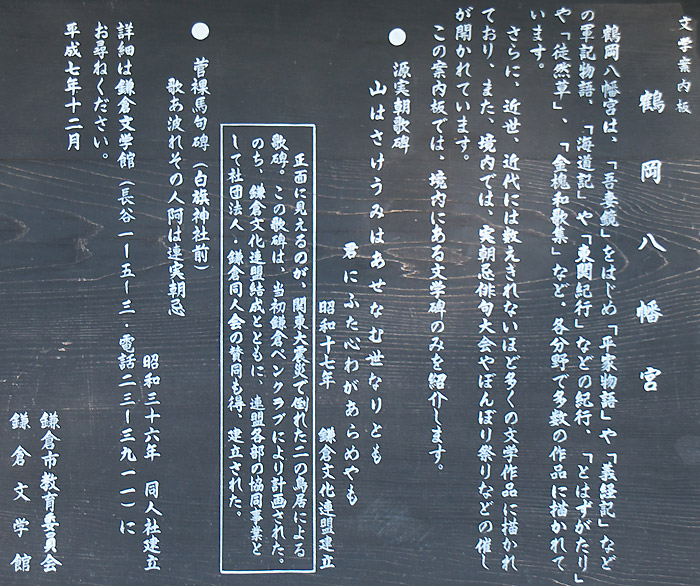 文学案内板
鶴岡八幡宮
鶴岡八幡宮は、「吾妻鏡」をはじめ「平家物語」や「義経記」など
の軍記物語、「海道記」や「東関紀行」などの紀行、「とはずがたり」
や「徒然草」、「金槐和歌集」など、各分野で多数の作品に描かれて
います。
さらに、近世、近代には数えきれないほど多くの文学作品に描かれ
ており、また、境内では、実朝忌俳句大会やぼんぼり祭りなどの催し
が開かれています。
この案内板では、境内にある文学碑のみを紹介します。
● 源実朝歌碑
山はさけうみはあせなむ世なりとも
君にふた心わがあらめやも
昭和十七年 鎌倉文化連盟建立
正面に見えるのが、関東大震災で倒れた二の鳥居による
歌碑。この歌碑は、当初鎌倉ペンクラブにより計画された。
のち、鎌倉文化連盟結成とともに、連盟各部の協同事業と
して社団法人・鎌倉同人会の賛同も得、建立された。
● 菅裸馬句碑(白旗神社前)
歌あ波れその人阿は連実朝忌
昭和三十六年 同人社建立
詳細は鎌倉文学館(長谷一ー五ー三・電話二三ー三九一一)に
お尋ねください。
平成七年十二月
鎌倉市教育委員会
鎌倉文学館